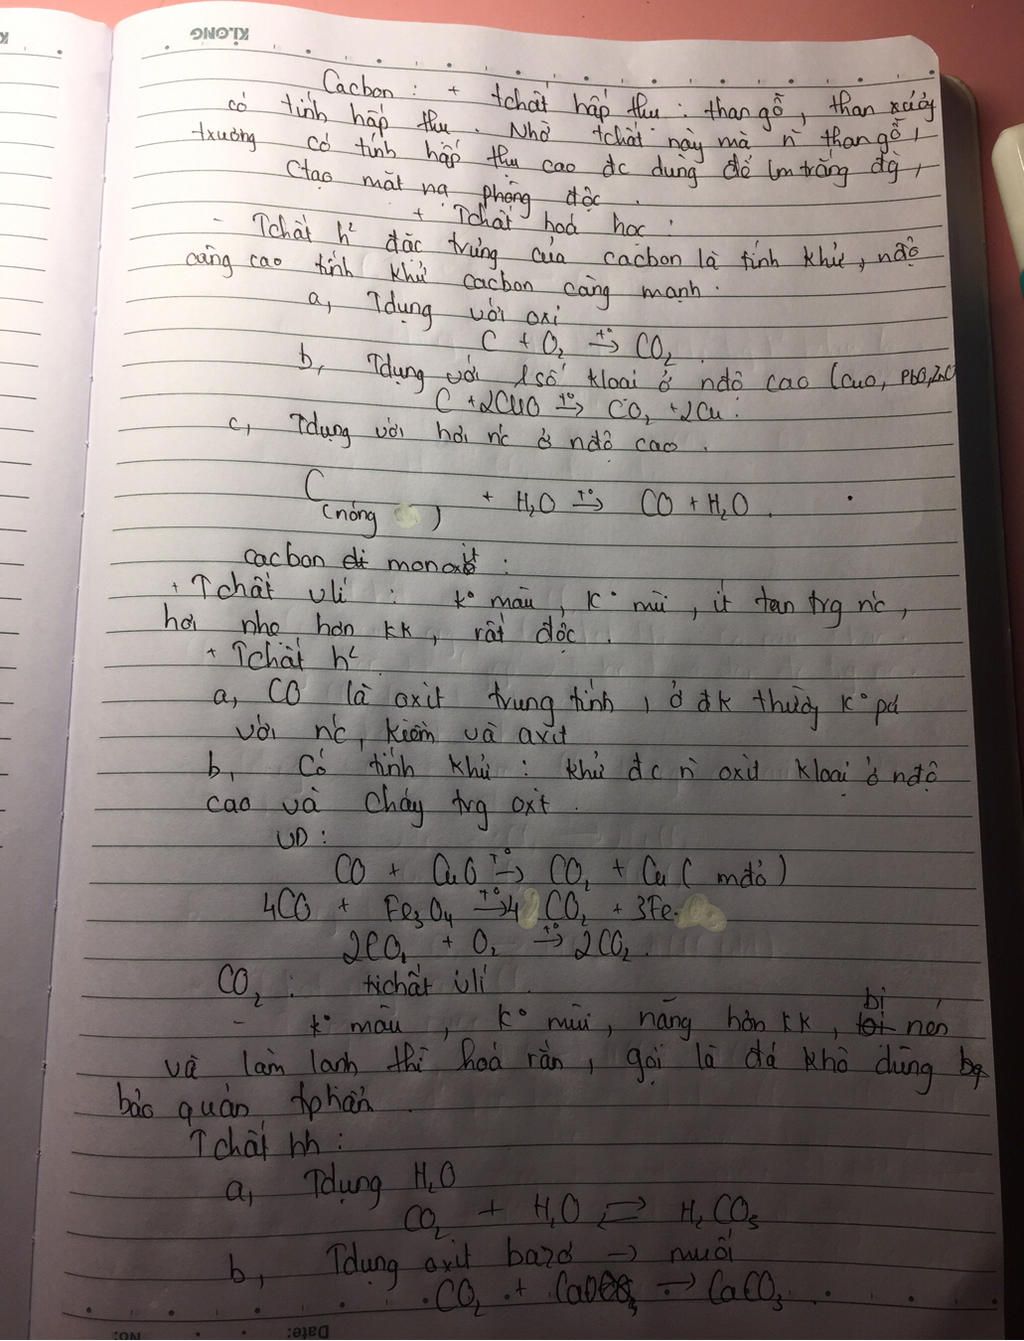 KLONG
Cacbon : + tchất hấp thu : than gỗ, than xương
có tính hấp thụ. Nhờ tchất này mà n̄ than gỗ,
txương có tính hấp thụ cao đc dùng để lm trắng đg,
Ctạo mặt nạ phòng độc.
+ Tchất hoá học :
- Tchất h² đặc trưng của cacbon là tính khử, nđộ
càng cao tính khử cacbon càng mạnh.
a, Tdụng với oxi
C + O₂ –t°→ CO₂.
b, Tdụng với 1 số kloại ở nđộ cao (CuO, PbO, ZnO
C + 2CuO –t°→ CO₂ + 2Cu.
c, Tdụng với hơi nc ở nđộ cao.
C + H₂O –t°→ CO + H₂O.
(nóng )
cacbon di monoxit :
+ Tchất vlí : k° màu, k° mùi, ít tan trg nc,
hơi nhẹ hơn kk, rất độc.
+ Tchất h²
a, CO là oxit trung tính, ở đk thường k° pứ
với nc, kiềm và axit
b, Có tính khử : khử đc n̄ oxit kloại ở nđộ
cao và cháy trg oxi.
VD :
CO + CuO –t°→ CO₂ + Cu ( mđỏ )
4CO + Fe₃O₄ –t°→ 4 CO₂ + 3Fe
2CO₂ + O₂ –t°→ 2CO₂.
CO₂ : tichất vlí.
- k° màu, k° mùi, nặng hơn kk, bị nén
và làm lạnh thì hoá rắn, gọi là đá khô dùng bq
bảo quản tphẩn.
Tchất hh :
a, Tdụng H₂O
CO₂ + H₂O ⇌ H₂CO₃
b, Tdụng oxit bazơ → muối
CO₂ + CaO → CaCO₃.
No: Date: